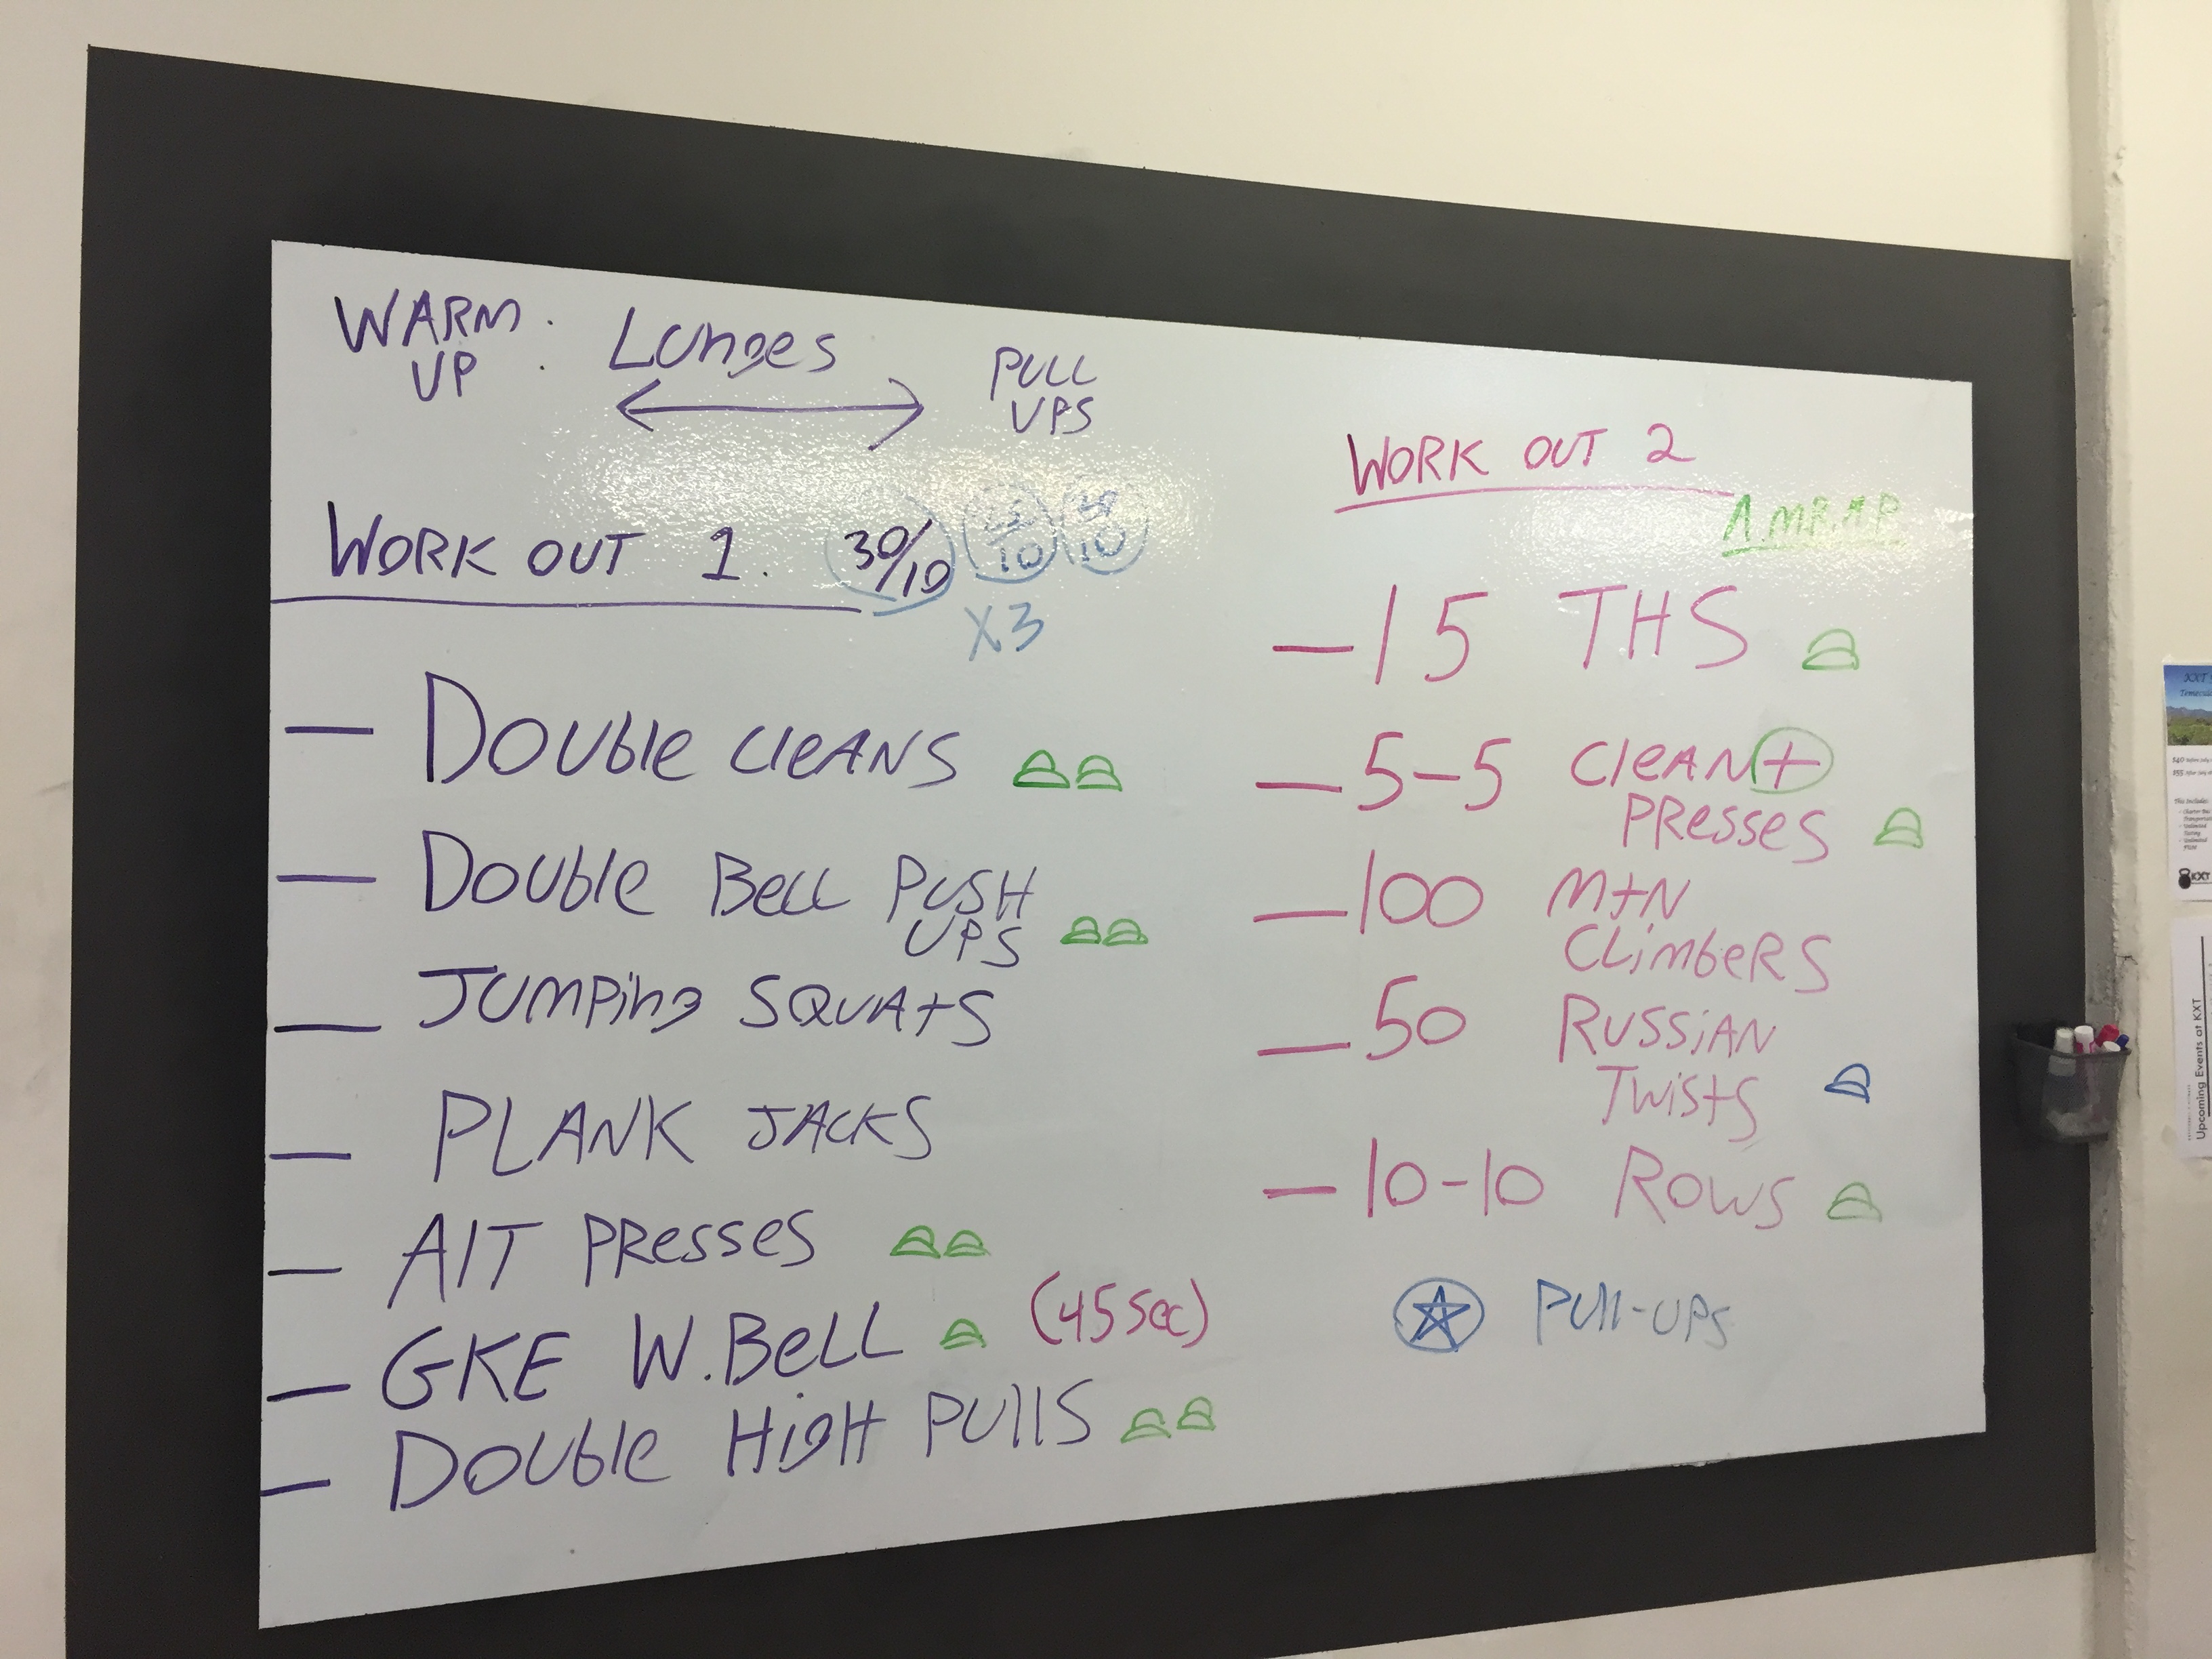 WARM UP : Lunges
PULL
UPS
WORK OUT 1. 30/10
10
10
X3
— Double CleANS
— Double Bell PUSH
UPS
— Jumping SQUAtS
— PLANK JACKS
— AlT PResses
— GKE W.Bell (45 Sec)
— Double HigH PUllS
WORK OUT 2
A.M.R.A.P.
— 15 THS
— 5-5 CleAN +
PResses
— 100 MtN
CLimbeRS
— 50 RUSSiAN
TwistS
— 10-10 ROWS
PUll-UPS
KXT
Upcoming Events at KXT